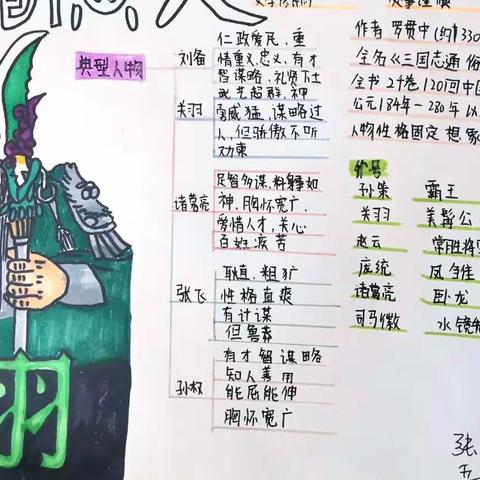 典型人物
刘备
仁政爱民、重
情重义忠义、有才
智谋略、礼贤下士
关羽
武艺超群、神
勇威猛、谋略过
人、但骄傲不听
劝束
诸葛亮
足智多谋、料事如
神、胸怀宽广、
爱惜人才、关心
百姓疾苦
张飞
耿直、粗犷
性格直爽
有计谋
但鲁莽
孙权
有才智谋略
知人善用
能屈能伸
胸怀宽广
作者 罗贯中(约1330
全名《三国志通俗
全书24卷120回中国
公元184年-280年以
人物性格固定 想象
外号
孙策 霸王
关羽 美髯公
赵云 常胜将军
庞统 凤雏
诸葛亮 卧龙
司马徽 水镜
羽
张
五